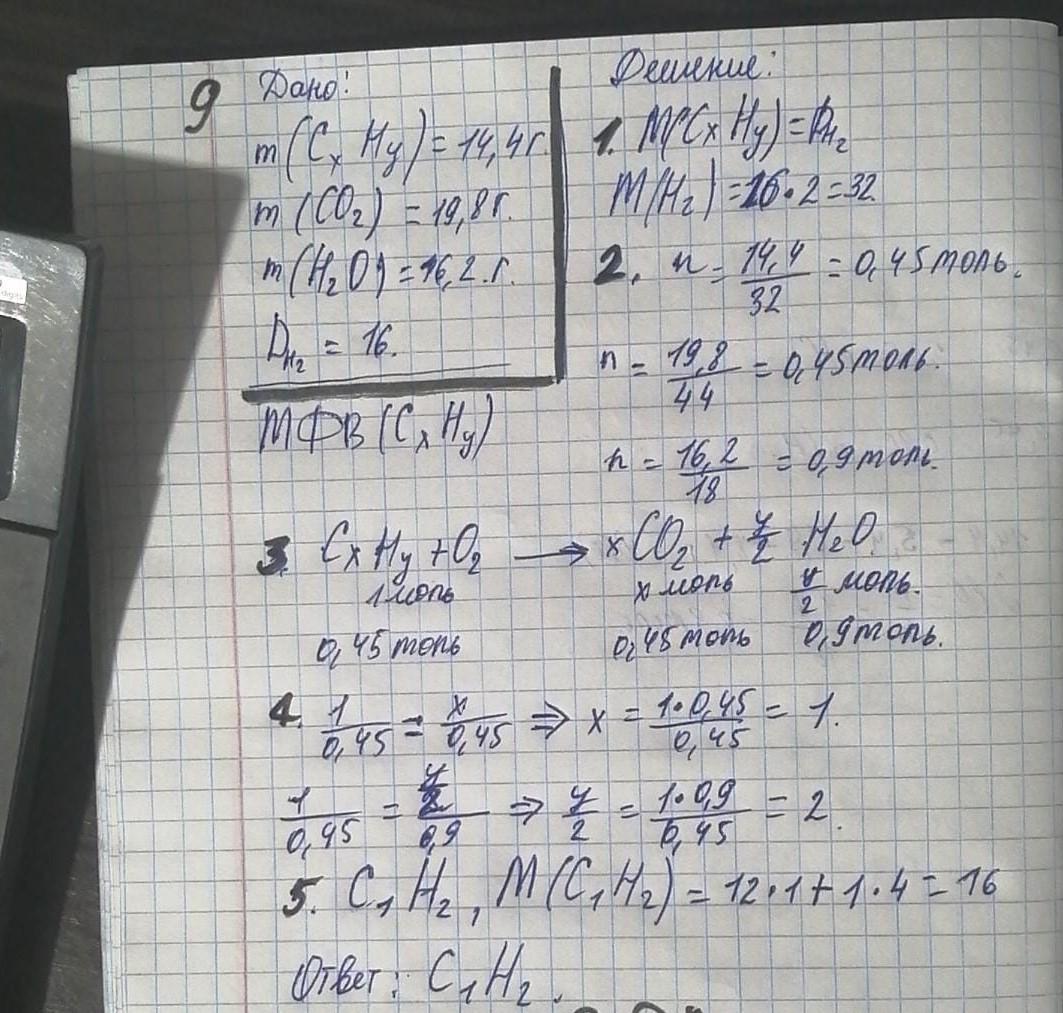 9 Дано:
m(CxHy) = 14,4 г.
m(CO2) = 19,8 г.
m(H2O) = 16,2 г.
DH2 = 16.
МФВ (CxHy)
Решение:
1. M(CxHy) = DH2
M(H2) = 16·2 = 32
2. n = 14,4/32 = 0,45 моль.
n = 19,8/44 = 0,45 моль.
n = 16,2/18 = 0,9 моль.
3. CxHy + O2 → xCO2 + y/2 H2O.
1 моль x моль y/2 моль.
0,45 моль 0,45 моль 0,9 моль.
4. 1/0,45 = x/0,45 ⇒ x = 1·0,45/0,45 = 1.
1/0,45 = y/2/0,9 ⇒ y/2 = 1·0,9/0,45 = 2.
5. C1H2, M(C1H2) = 12·1 + 1·4 = 16
Ответ: C1H2.